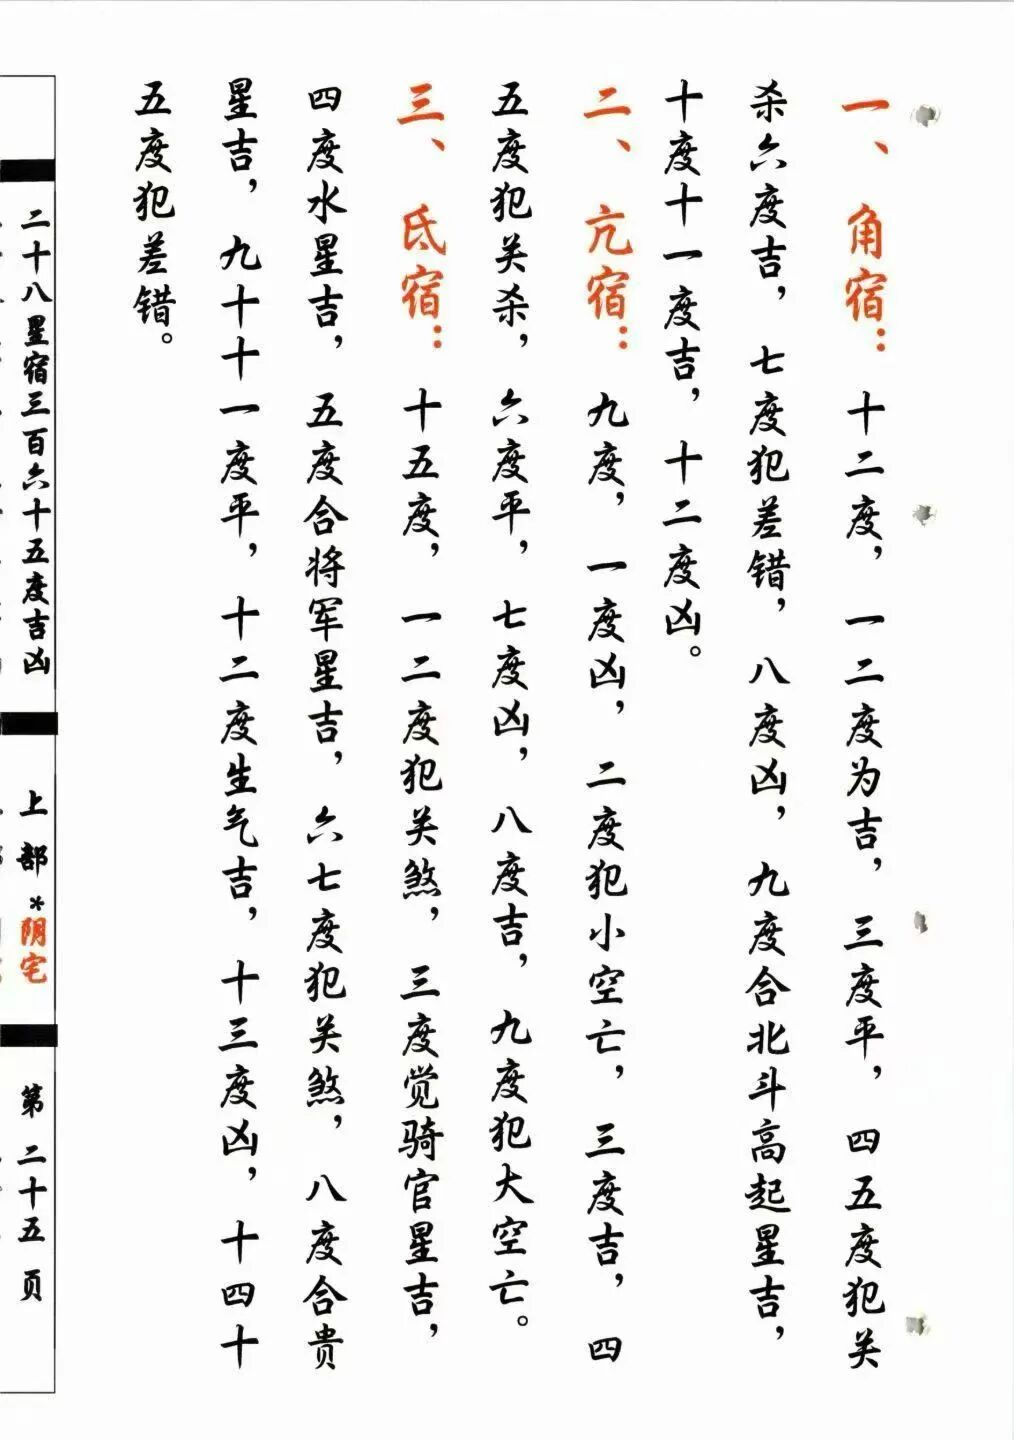 一、角宿：十二度，一二度为吉，三度平，四五度犯关
杀六度吉，七度犯差错，八度凶，九度合北斗高起星吉，
十度十一度吉，十二度凶。
二、亢宿：九度，一度凶，二度犯小空亡，三度吉，四
五度犯关杀，六度平，七度凶，八度吉，九度犯大空亡。
三、氐宿：十五度，一二度犯关煞，三度觉骑官星吉，
四度水星吉，五度合将军星吉，六七度犯关煞，八度合贵
星吉，九十十一度平，十二度生气吉，十三度凶，十四十
五度犯差错。
二十八星宿三百六十五度吉凶
上部*阴宅
第二十五页